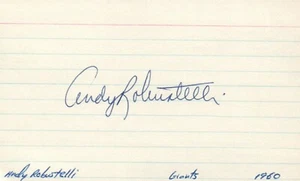 Andy Robustelli.
Andy Robustelli Giants 1960